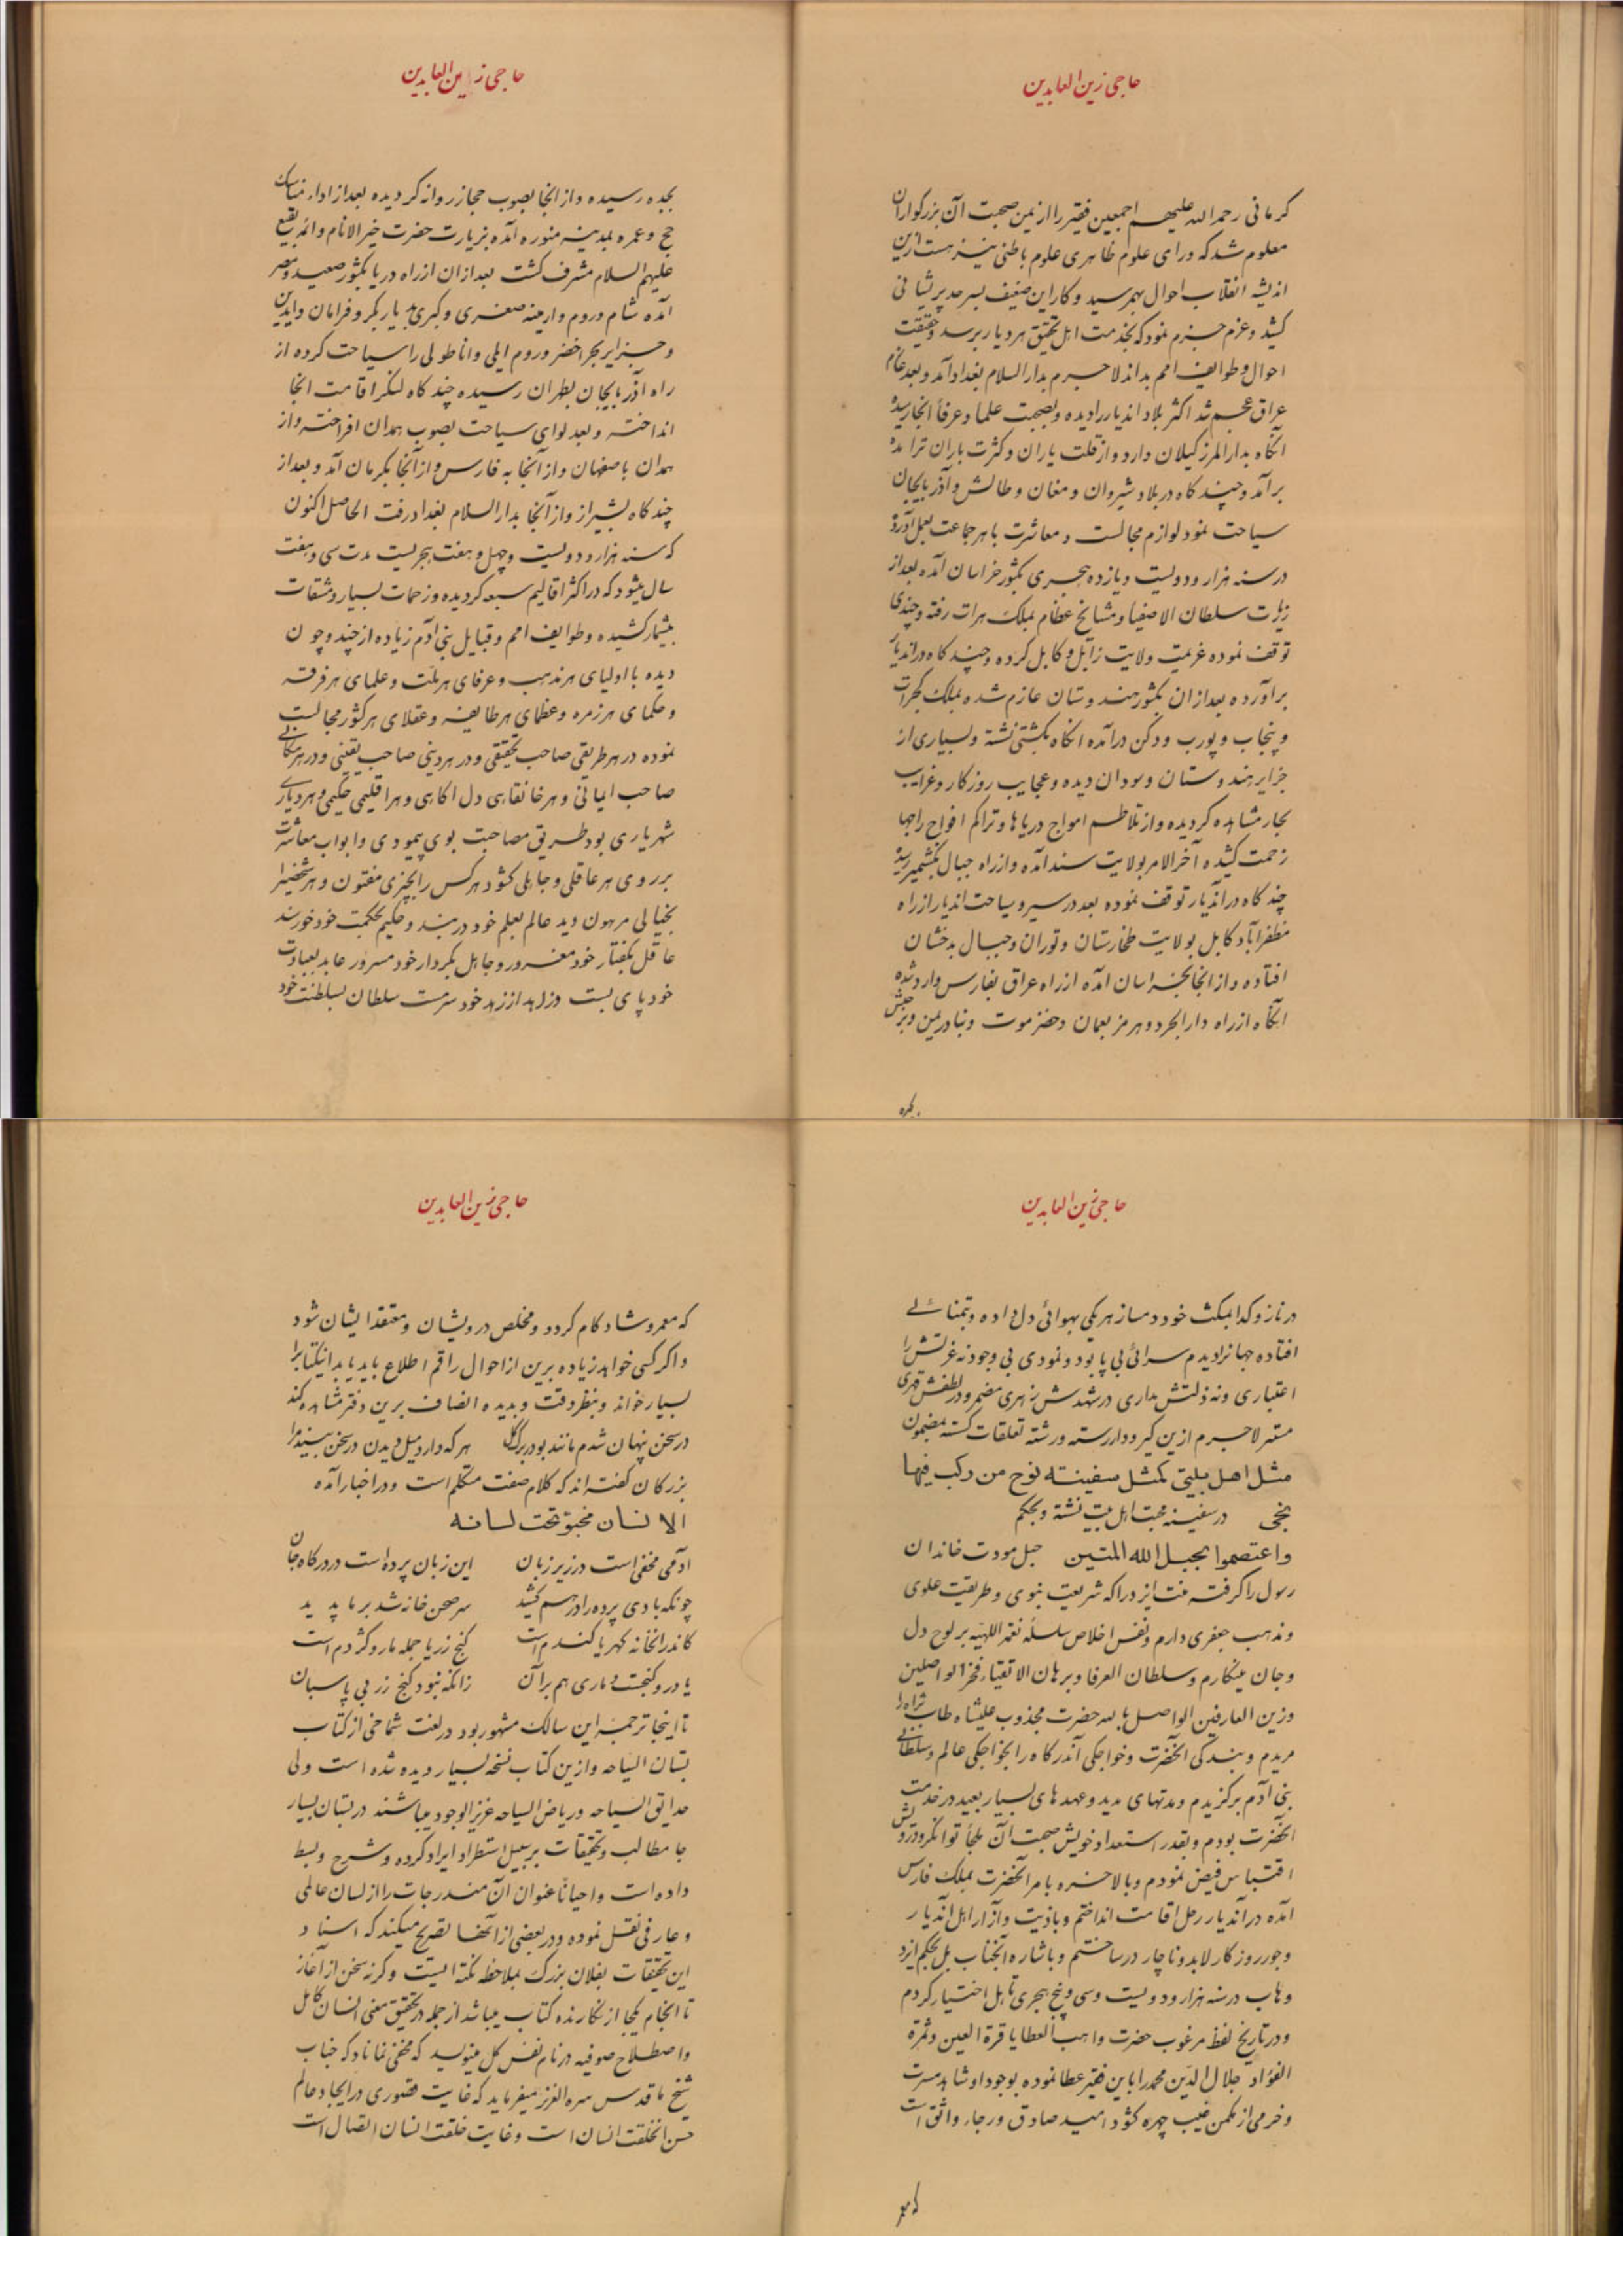 حاجی زین العابدین
کرمانی رحمه الله علیهم اجمعین فقیر را از یمن صحبت آن بزرکواران
معلوم شد که ورای علوم ظاهری علوم باطنی نیز هست ازین
اندیشه انقلاب احوال بهمرسید و کار این ضعیف بسر حد پریشانی
کشید و عزم جزم نمود که بخدمت اهل تحقیق هر دیار برسد و حقیقت
احوال و طوایف امم بداند لاجرم بدار السلام بغداد آمد و بعد عازم
عراق عجم شد اکثر بلاد اندیار را دیده و بصحبت علما و عرفا انجا رسیده
آنکاه بدار المرز کیلان وارد و از قلت یاران و کثرت باران ترا مده
برآمد و چند کاه در بلاد شیروان و مغان و طالش و آذربایجان
سیاحت نمود لوازم مجالست و معاشرت با هر جماعت بعمل آورد
در سنه هزار و دویست و یازده هجری بکشور خراسان آمده بعد از
زیارت سلطان الاصفیا و مشایخ عظام بملک هرات رفته و چندی
توقف نموده عزیمت ولایت زابل و کابل کرده و چند کاه در اندیار
برآورده بعد از ان بکشور هندوستان عازم شده بملک کجرات
و پنجاب و پورب و دکن درآمده انکاه بکشتی نشسته و بسیاری از
جزایر هندوستان و سودان دیده و عجایب روزکار و غرایب
بحار مشاهده کردیده و از تلاطم امواج دریاها و تراکم افواج راجها
زحمت کشیده آخر الامر بولایت سند آمده و از راه جبال بکشمیر رسید
چند کاه در اندیار توقف نموده بعد در سیر و سیاحت اندیار از راه
مظفرآباد کابل بولایت طخارستان و توران و جبال بدخشان
افتاده و از انجا بخراسان آمده از راه عراق بفارس وارد شده
آنکاه از راه دارابجرد و هرمز بعمان و حضرموت و بنادر یمن و بر حبش
بجده
حاجی زین العابدین
بجده رسیده و از انجا بصوب حجاز روانه کردیده بعد از اداء مناسک
حج و عمره بمدینه منوره آمده بزیارت حضرت خیر الانام و ائمه بقیع
علیهم السلام مشرف کشت بعد ازان از راه دریا بکشور صعید و مصر
آمده شام و روم و ارمینه صغری و کبری و دیار بکر و قرامان و ایدین
و جزایر بحر اخضر و روم ایلی و اناطولی را سیاحت کرده از
راه آذربایجان بطهران رسیده چند کاه لنکر اقامت انجا
انداخته و بعد لوای سیاحت بصوب همدان افراخته و از
همدان باصفهان و از آنجا به فارس و از آنجا بکرمان آمد و بعد از
چند کاه بشیراز و از آنجا بدار السلام بغداد رفت الحاصل اکنون
که سنه هزار و دویست و چهل و هفت هجریست مدت سی و هفت
سال میشود که در اکثر اقالیم سبعه کردیده و زحمات بسیار و مشقات
بیشمار کشیده و طوایف امم و قبایل بنی آدم زیاده از چند و چون
دیده با اولیای هر مذهب و عرفای هر ملت و علمای هر فرقه
و حکمای هر زمره و عظمای هر طایفه و عقلای هر کشور مجالست
نموده در هر طریقی صاحب تحقیقی و در هر دینی صاحب یقینی و در هر مکانی
صاحب ایمانی و هر خانقاهی دل اکاهی و هر اقلیمی حکیمی و هر دیاری
شهریاری بود طریق مصاحبت بوی پیمودی و ابواب معاشرت
بر روی هر عاقلی و جاهلی کشود هر کس را بچیزی مفتون و هر شخصیرا
بخیالی مرهون دید عالم بعلم خود در بند و حکیم بحکمت خود خورسند
عاقل بکفتار خود مغرور و جاهل بکردار خود مسرور عابد بعبادت
خود پای بست و زاهد از زهد خود سرمست سلطان بسلطنت خود
حاجی زین العابدین
در ناز و کدا بمکنت خود دمساز هر یکی بهوائی دل داده و بتمنائی
افتاده جهانرا دیدم سرائی بی پا بود و نمودی بی وجود نه عزتش را
اعتباری و نه ذلتش مداری در شهدش زهری مضمر و در لطفش قهری
مستتر لاجرم ازین کیر و دار رسته و رشته تعلقات کسسته بمضمون
مثل اهل بیتی کمثل سفینته نوح من رکب فیها
نجی در سفینه محبت اهل بیت نشسته و بحکم
واعتصموا بحبل الله المتین حبل مودت خاندان
رسول را کرفته منت ایزد را که شریعت نبوی و طریقت علوی
و مذهب جعفری دارم و نقش اخلاص سلسله نعمة اللهیه بر لوح دل
و جان مینکارم و سلطان العرفا و برهان الاتقیاء فخر الواصلین
و زین العارفین الواصل بالله حضرت مجذوب علیشاه طاب ثراه را
مریدم و بندکی انحضرت و خواجکی آندرکاه را بخواجکی عالم و سلطانی
بنی آدم برکزیدم و مدتهای مدید و عهدهای بسیار بعید در خدمت
انحضرت بودم و بقدر استعداد خویش صحبت آن ملجأ توانکر و درویش
اقتباس فیض نمودم و بالاخره بامر آنحضرت بملک فارس
آمده در آندیار رحل اقامت انداختم و باذیت و آزار اهل آندیار
و جور روزکار لابد و ناچار در ساختم و باشاره آنجناب بل بحکم ایزد
وهاب در سنه هزار و دویست و سی و پنج هجری تاهل اختیار کردم
و در تاریخ لفظ مرغوب حضرت واهب العطایا قرة العین و ثمرة
الفؤاد جلال الدین محمد را باین فقیر عطا نموده بوجود او شاهد مسرت
و خرمی از مکمن غیب چهره کشود امید صادق و رجاء واثق است
که معمر
حاجی زین العابدین
که معمر و شاد کام کردد و مخلص درویشان و معتقد ایشان شود
و اکر کسی خواهد زیاده برین از احوال راقم اطلاع یابد باید اینکتابرا
بسیار خواند و بنظر دقت و بدیده انصاف برین دفتر مشاهده کند
در سخن پنهان شدم مانند بو در برک کل هر که دارد میل دیدن در سخن بیند مرا
بزرکان کفته اند که کلام صفت متکلم است و در اخبار آمده
الانسان مخبؤ تحت لسانه
آدمی مخفی است در زیر زبان این زبان پرده است در درکاه جان
چونکه بادی پرده را در هم کشید سر صحن خانه شد بر ما پدید
کاندر انخانه کهر یا کندم است کنج زر یا جمله مار و کژدم است
یا در و کنجست و ماری هم بران زانکه نبود کنج زر بی پاسبان
تا اینجا ترجمه این سالک مشهور بود در لغت شماخی از کتاب
بستان السیاحه و ازین کتاب نسخه بسیار دیده شده است ولی
حدائق السیاحه و ریاض السیاحه عزیز الوجود میباشند در بستان بسیار
جا مطالب و تحقیقات بر سبیل استطراد ایراد کرده و شرح و بسط
داده است و احیاناً عنوان آن مندرجات را از لسان عالمی
و عارفی نقل نموده و در بعضی از آنها تصریح میکند که اسناد
این تحقیقات بفلان بزرک بملاحظه نکته ایست و کرنه سخن از آغاز
تا انجام یکجا از نکارنده کتاب میباشد از جمله در تحقیق معنی انسان کامل
و اصطلاح صوفیه در نام نفس کل مینویسد که مخفی نماناد که جناب
شیخ ما قدس سره العزیز میفرماید که غایت قصوری در ایجاد عالم
حسن الخلقت انسان است و غایت خلقت انسان اتصال است